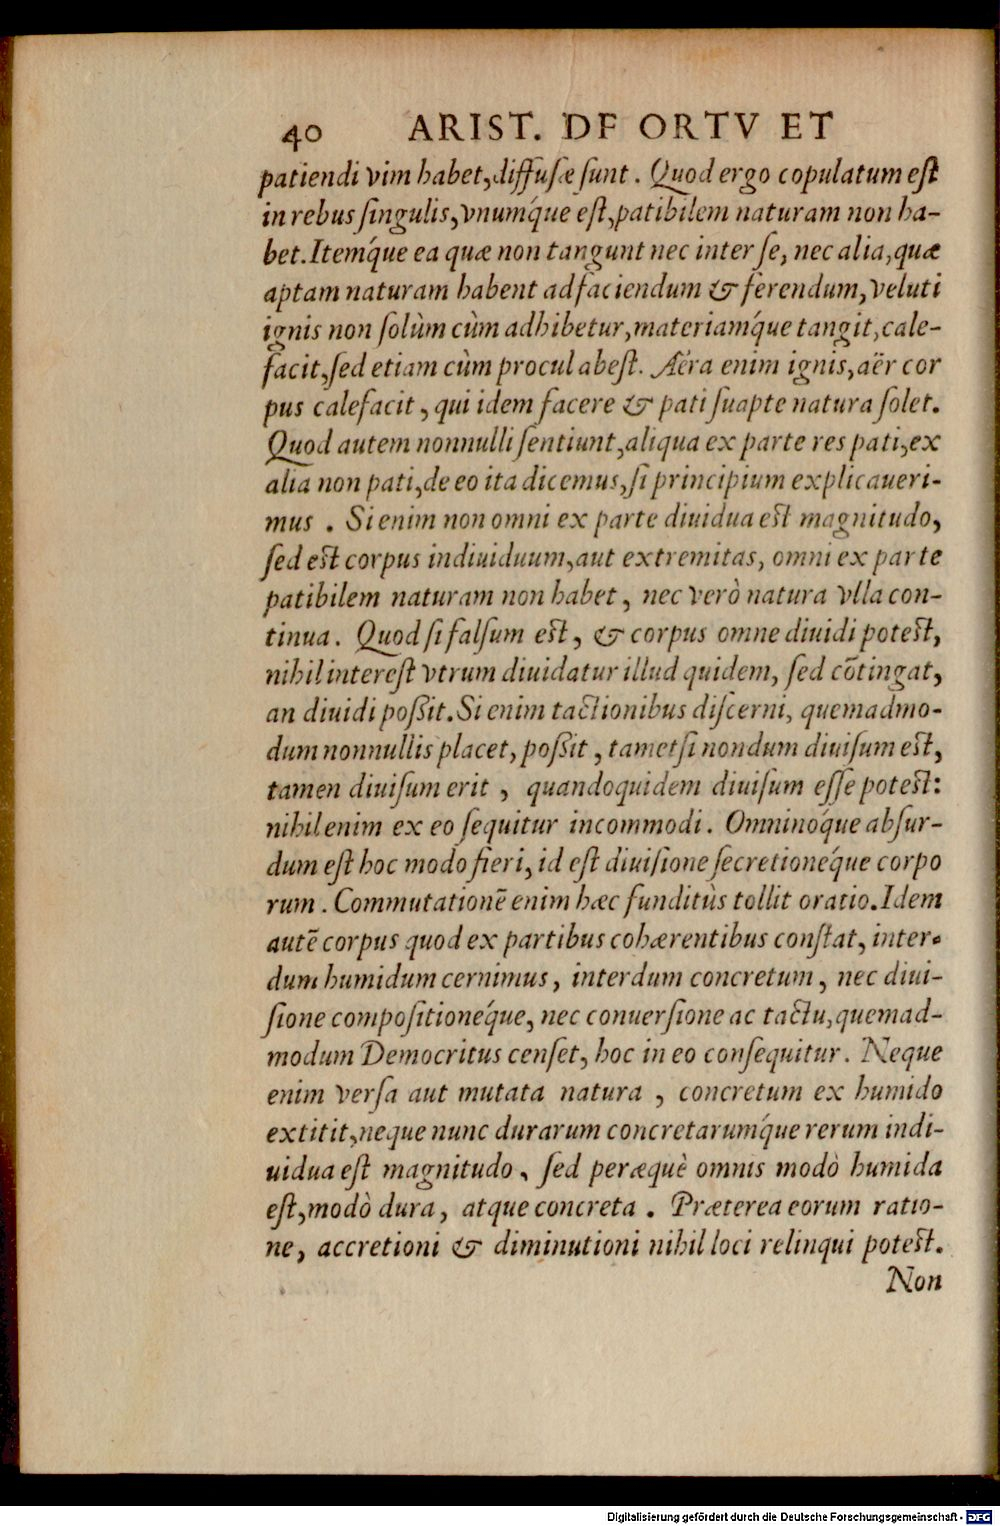 40 ARIST. DE ORTV ET
patiendi vim habet, diffusæ sunt. Quod ergo copulatum est
in rebus singulis, vnumq́ue est, patibilem naturam non ha-
bet. Itemq́ue ea quæ non tangunt nec inter se, nec alia, quæ
aptam naturam habent ad faciendum & ferendum, veluti
ignis non solùm cùm adhibetur, materiamq́ue tangit, cale-
facit, sed etiam cùm procul abest. Aëra enim ignis, aër cor
pus calefacit, qui idem facere & pati suapte natura solet.
Quod autem nonnulli sentiunt, aliqua ex parte res pati, ex
alia non pati, de eo ita dicemus, si principium explicaueri-
mus. Si enim non omni ex parte diuidua est magnitudo,
sed est corpus indiuiduum, aut extremitas, omni ex parte
patibilem naturam non habet, nec verò natura vlla con-
tinua. Quod si falsum est, & corpus omne diuidi potest,
nihil interest vtrum diuidatur illud quidem, sed cõtingat,
an diuidi possit. Si enim tactionibus discerni, quemadmo-
dum nonnullis placet, possit, tametsi nondum diuisum est,
tamen diuisum erit, quandoquidem diuisum esse potest:
nihil enim ex eo sequitur incommodi. Omninoq́ue absur-
dum est hoc modo fieri, id est diuisione secretioneq́ue corpo
rum. Commutationē enim hæc funditùs tollit oratio. Idem
autē corpus quod ex partibus cohærentibus constat, inter-
dum humidum cernimus, interdum concretum, nec diui-
sione compositioneq́ue, nec conuersione ac tactu, quemad-
modum Democritus censet, hoc in eo consequitur. Neque
enim versa aut mutata natura, concretum ex humido
extitit, neque nunc durarum concretarumq́ue rerum indi-
uidua est magnitudo, sed peræquè omnis modò humida
est, modò dura, atque concreta. Præterea eorum ratio-
ne, accretioni & diminutioni nihil loci relinqui potest.
Non
Digitalisierung gefördert durch die Deutsche Forschungsgemeinschaft - DFG